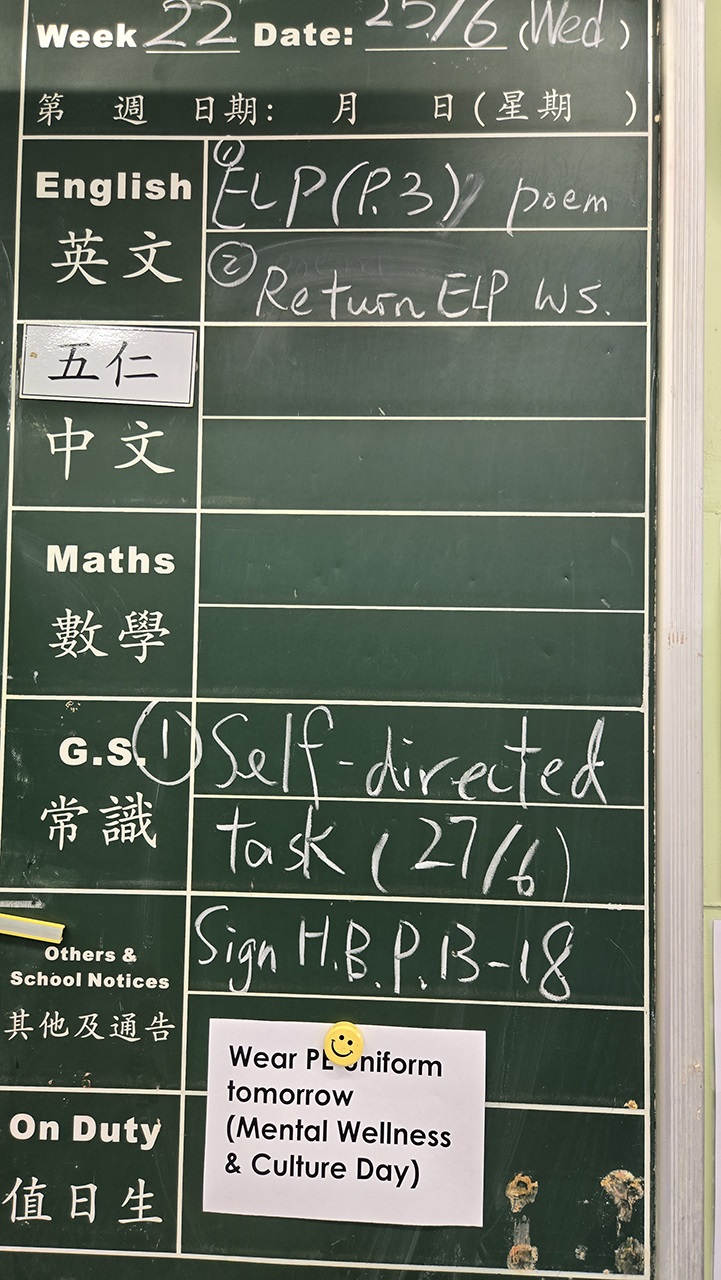 Week 22 Date: 25/6 (Wed)
第 週 日期: 月 日(星期 )
English
英文
① ELP (P.3) poem
② Return ELP WS.
五仁
中文
Maths
數學
G.S.
常識
① Self-directed
task (27/6)
Others &
School Notices
其他及通告
Sign H.B.P. 13-18
Wear PE uniform
tomorrow
(Mental Wellness
& Culture Day)
On Duty
值日生